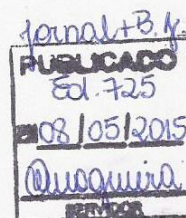 Jornal+B.J.
PUBLICADO
Ed. 725
EM 08/05/2015
SERVIDOR